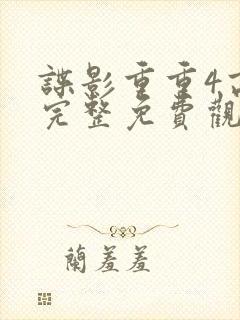 諜影重重4高
完整免費觀
蘭羞羞